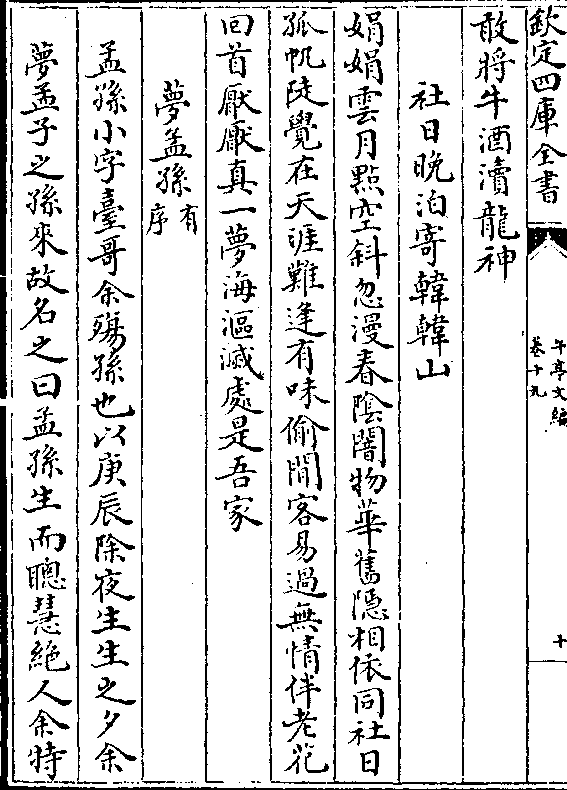 欽定四庫全書
午亭文編
卷十九
十
敢將牛酒瀆龍神
社日晚泊寄韓韓山
娟娟雲月點空斜忽漫春陰闇物華舊隱相依同社日
孤帆陡覺在天涯難逢有味偷閒客易過無情伴老花
回首厭厭真一夢海漚滅處是吾家
夢孟孫有序
孟孫小字臺哥余殤孫也以庚辰除夜生生之夕余
夢孟子之孫來故名之曰孟孫生而聰慧絶人余特